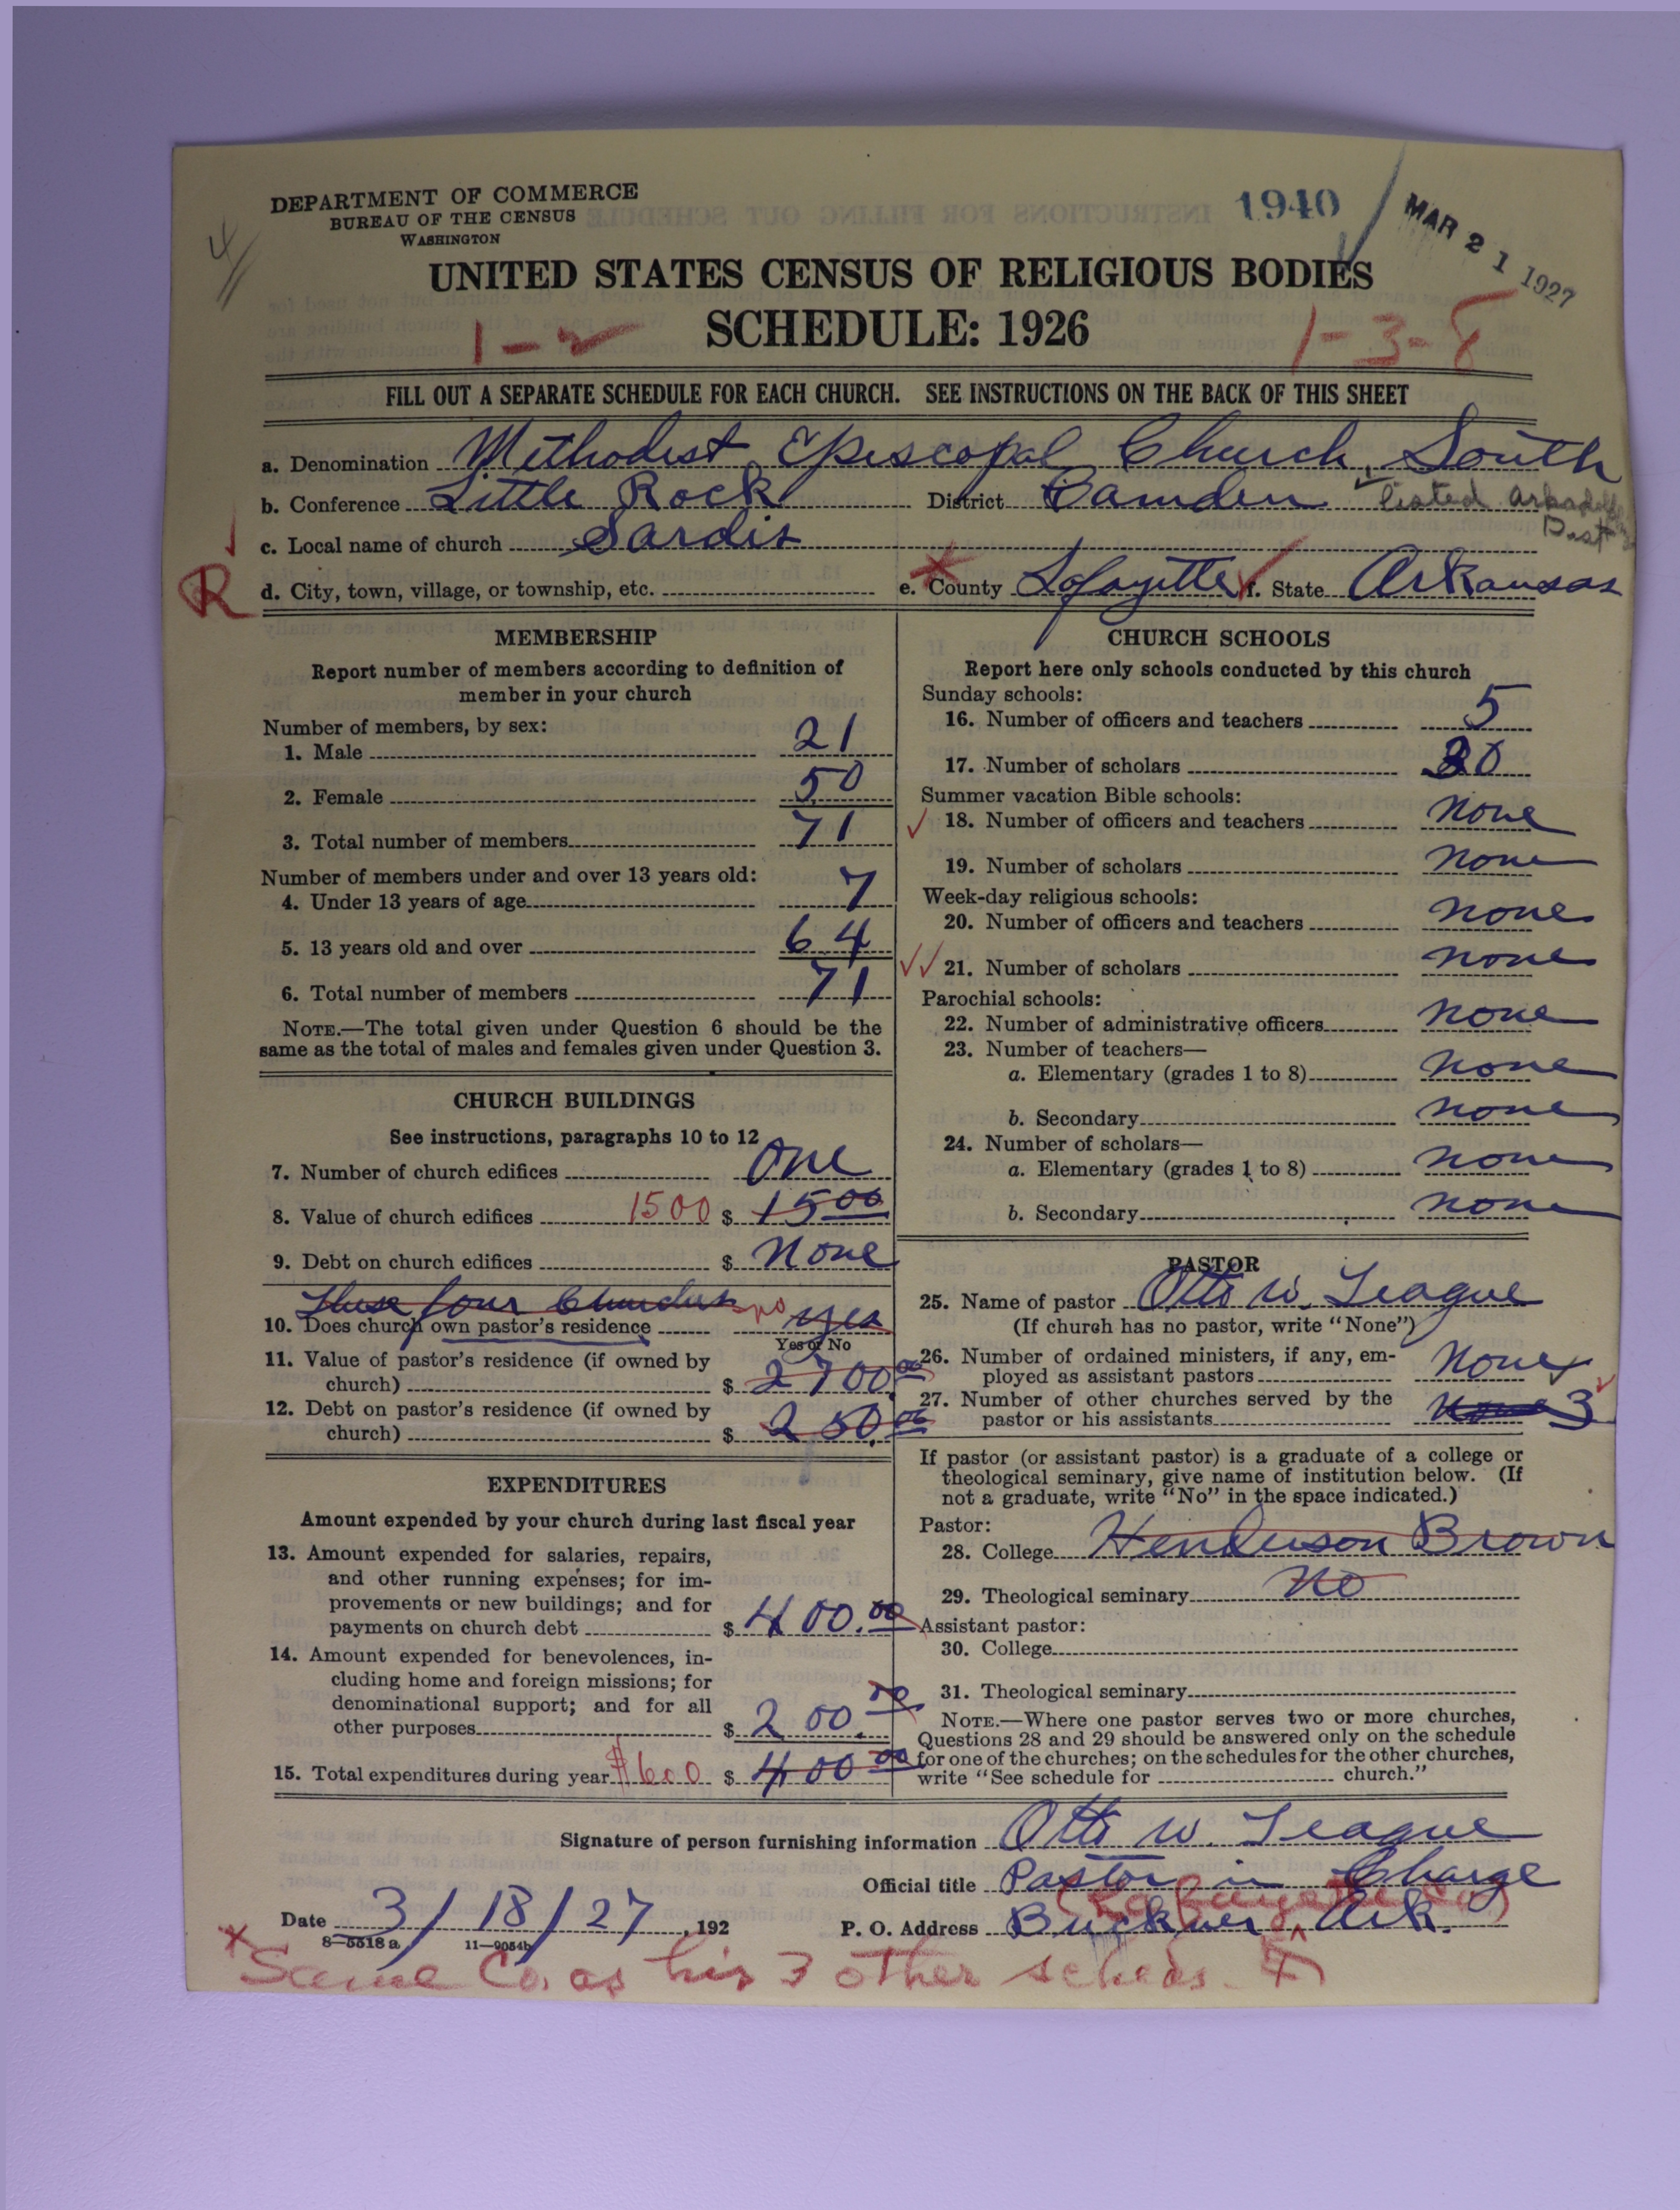 DEPARTMENT OF COMMERCE
BUREAU OF THE CENSUS
WASHINGTON
1940
MAR 21 1927
4
UNITED STATES CENSUS OF RELIGIOUS BODIES
SCHEDULE: 1926
1-2
1-3-8
FILL OUT A SEPARATE SCHEDULE FOR EACH CHURCH. SEE INSTRUCTIONS ON THE BACK OF THIS SHEET
a. Denomination Methodist Episcopal Church, South
b. Conference Little Rock District Camden listed
Dist
c. Local name of church Sardis
R
d. City, town, village, or township, etc. e. County Lafayette f. State Arkansas
MEMBERSHIP
Report number of members according to definition of
member in your church
Number of members, by sex:
1. Male 21
2. Female 50
3. Total number of members 71
Number of members under and over 13 years old:
4. Under 13 years of age 7
5. 13 years old and over 64
6. Total number of members 71
NOTE.—The total given under Question 6 should be the
same as the total of males and females given under Question 3.
CHURCH BUILDINGS
See instructions, paragraphs 10 to 12
7. Number of church edifices One
8. Value of church edifices 1500 $ 1500
9. Debt on church edifices $ None
These four Churches
10. Does church own pastor's residence no yes
Yes or No
11. Value of pastor's residence (if owned by
church) $ 2700.00
12. Debt on pastor's residence (if owned by
church) $ 250.00
EXPENDITURES
Amount expended by your church during last fiscal year
13. Amount expended for salaries, repairs,
and other running expenses; for im-
provements or new buildings; and for
payments on church debt $ 400.00
14. Amount expended for benevolences, in-
cluding home and foreign missions; for
denominational support; and for all
other purposes $ 200.00
15. Total expenditures during year $600 $ 400.00
CHURCH SCHOOLS
Report here only schools conducted by this church
Sunday schools:
16. Number of officers and teachers 5
17. Number of scholars 30
Summer vacation Bible schools:
18. Number of officers and teachers None
19. Number of scholars None
Week-day religious schools:
20. Number of officers and teachers None
21. Number of scholars None
Parochial schools:
22. Number of administrative officers None
23. Number of teachers—
a. Elementary (grades 1 to 8) None
b. Secondary None
24. Number of scholars—
a. Elementary (grades 1 to 8) None
b. Secondary None
PASTOR
25. Name of pastor Otto W. Teague
(If church has no pastor, write "None")
26. Number of ordained ministers, if any, em-
ployed as assistant pastors None
27. Number of other churches served by the
pastor or his assistants None 3
If pastor (or assistant pastor) is a graduate of a college or
theological seminary, give name of institution below. (If
not a graduate, write "No" in the space indicated.)
Pastor:
28. College Henderson Brown
29. Theological seminary No
Assistant pastor:
30. College
31. Theological seminary
NOTE.—Where one pastor serves two or more churches,
Questions 28 and 29 should be answered only on the schedule
for one of the churches; on the schedules for the other churches,
write "See schedule for church."
Signature of person furnishing information Otto W. Teague
Official title Pastor in Charge
(Lafayette Co)
Date 3/18/27, 192 P. O. Address Buckner, Ark.
8-5518a 11-9054b
Same Co. as his 3 other scheds.